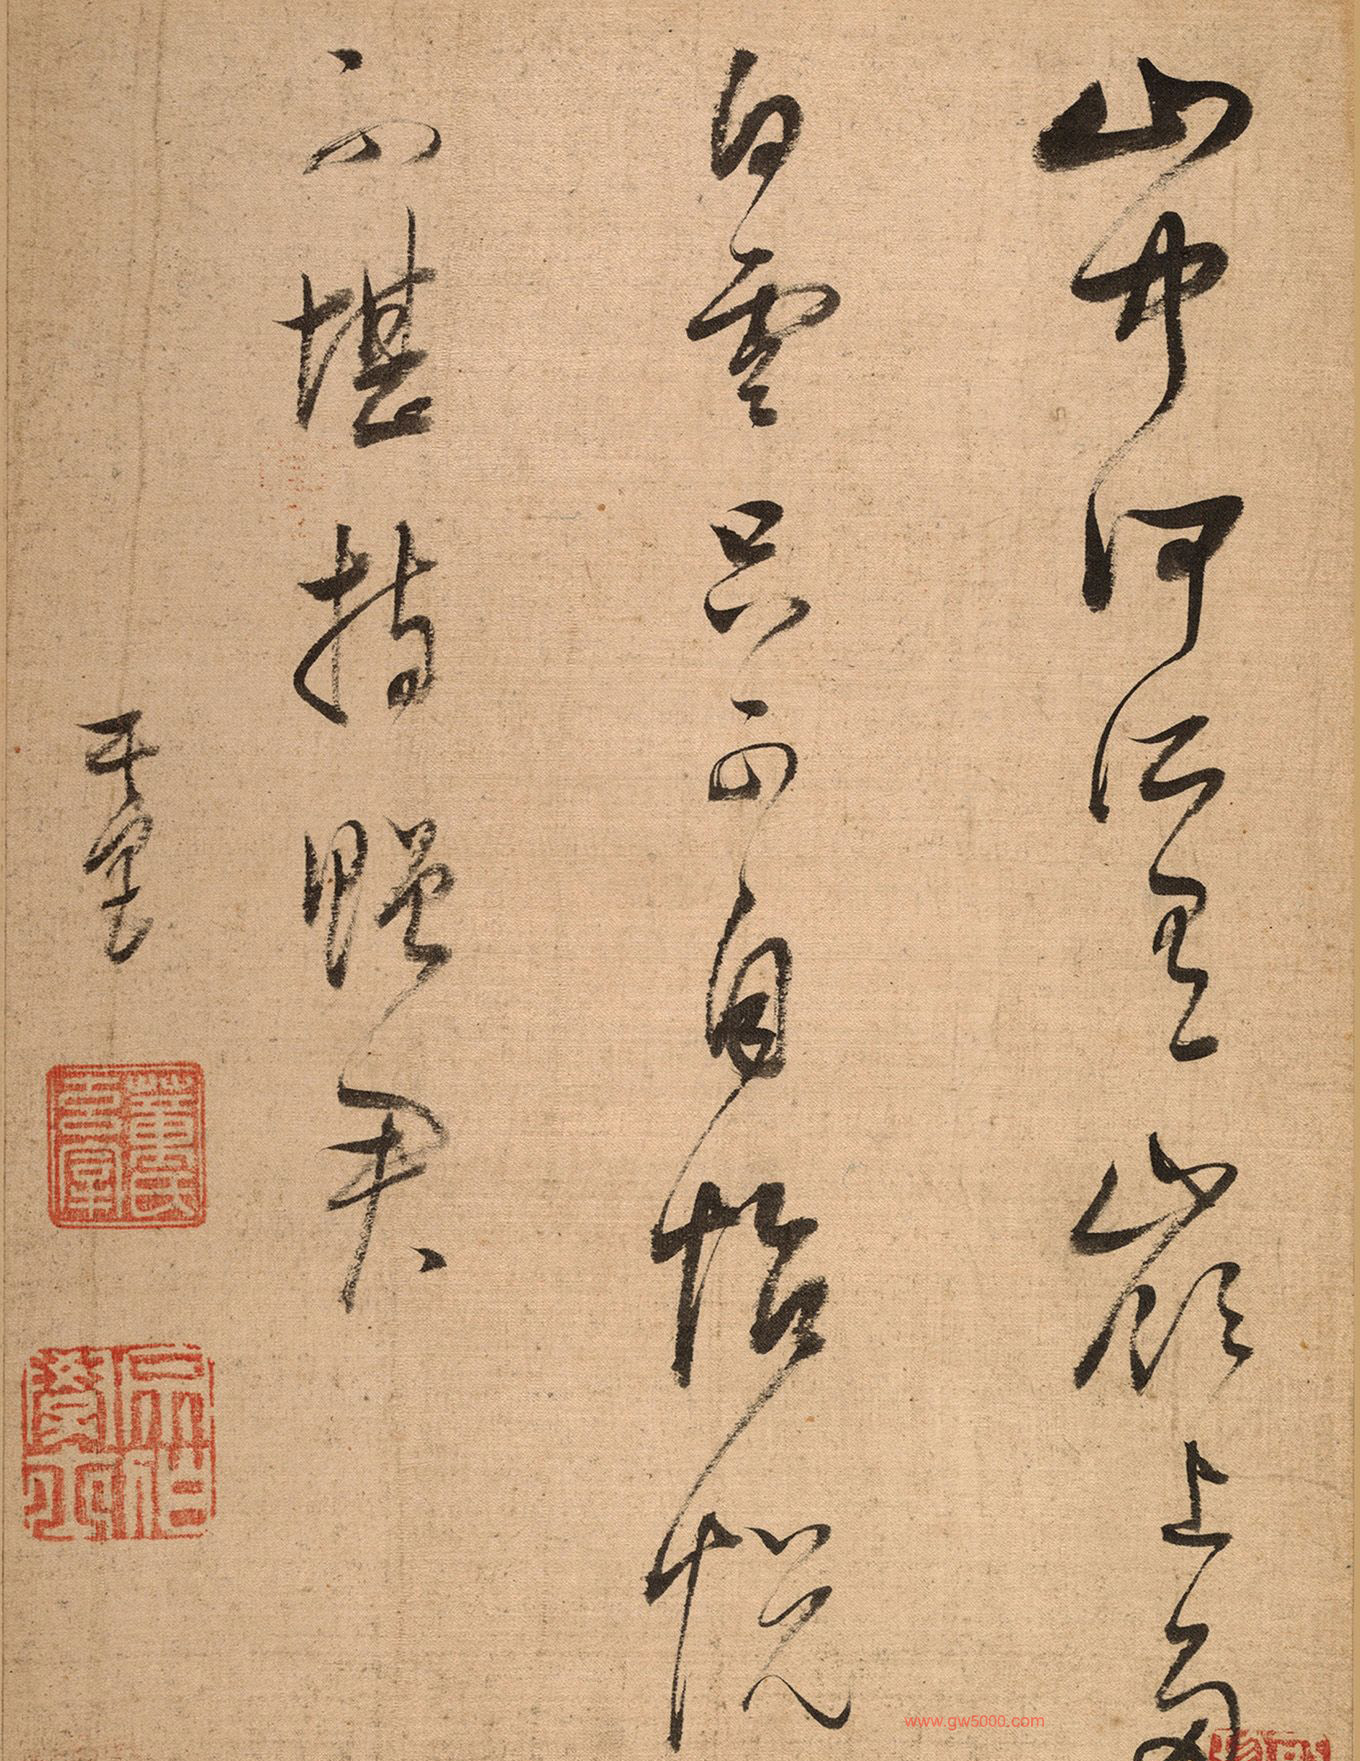 山中何所有嶺上多
白雲只可自怡悅
不堪持贈君
玄宰
董氏玄宰
www.gw5000.com